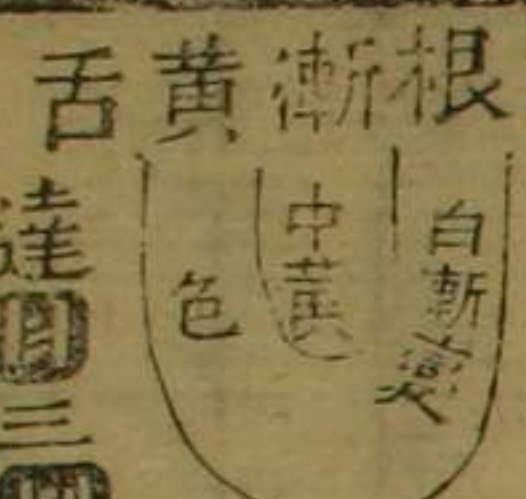 根漸黃舌
白漸變
中黃
色
達
三